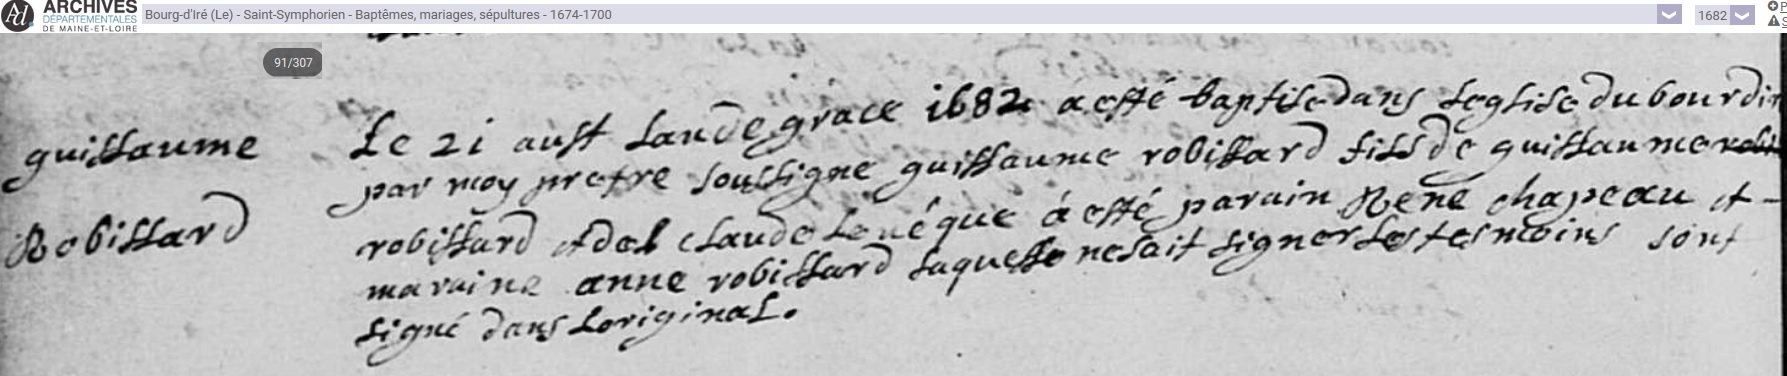 ARCHIVES
DÉPARTEMENTALES
DE MAINE-ET-LOIRE
Bourg-d'Iré (Le) - Saint-Symphorien - Baptêmes, mariages, sépultures - 1674-1700
1682
91/307
guillaume
Robillard
Le 21 aust lan de grace 1682 a esté baptisé dans leglise du bourdi
par moy pretre soussigne guillaume robillard fils de guillaume
robillard et de claude levéque á esté parain René chapeau et
maraine anne robillard laquelle ne sait signer les tesmoins sont
signé dans loriginal.